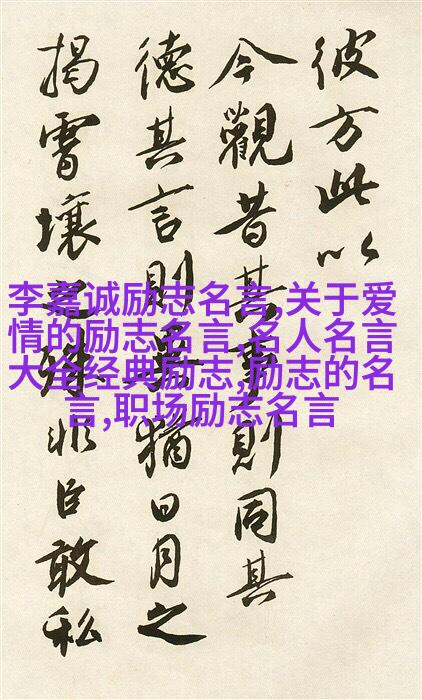 彼方此以
今觀昔其事則同其
德其言則異猶日月之
揭霄壤之殊非臣敢私
李嘉诚励志名言,关于爱
情的励志名言,名人名言
大全经典励志,励志的名
言,职场励志名言